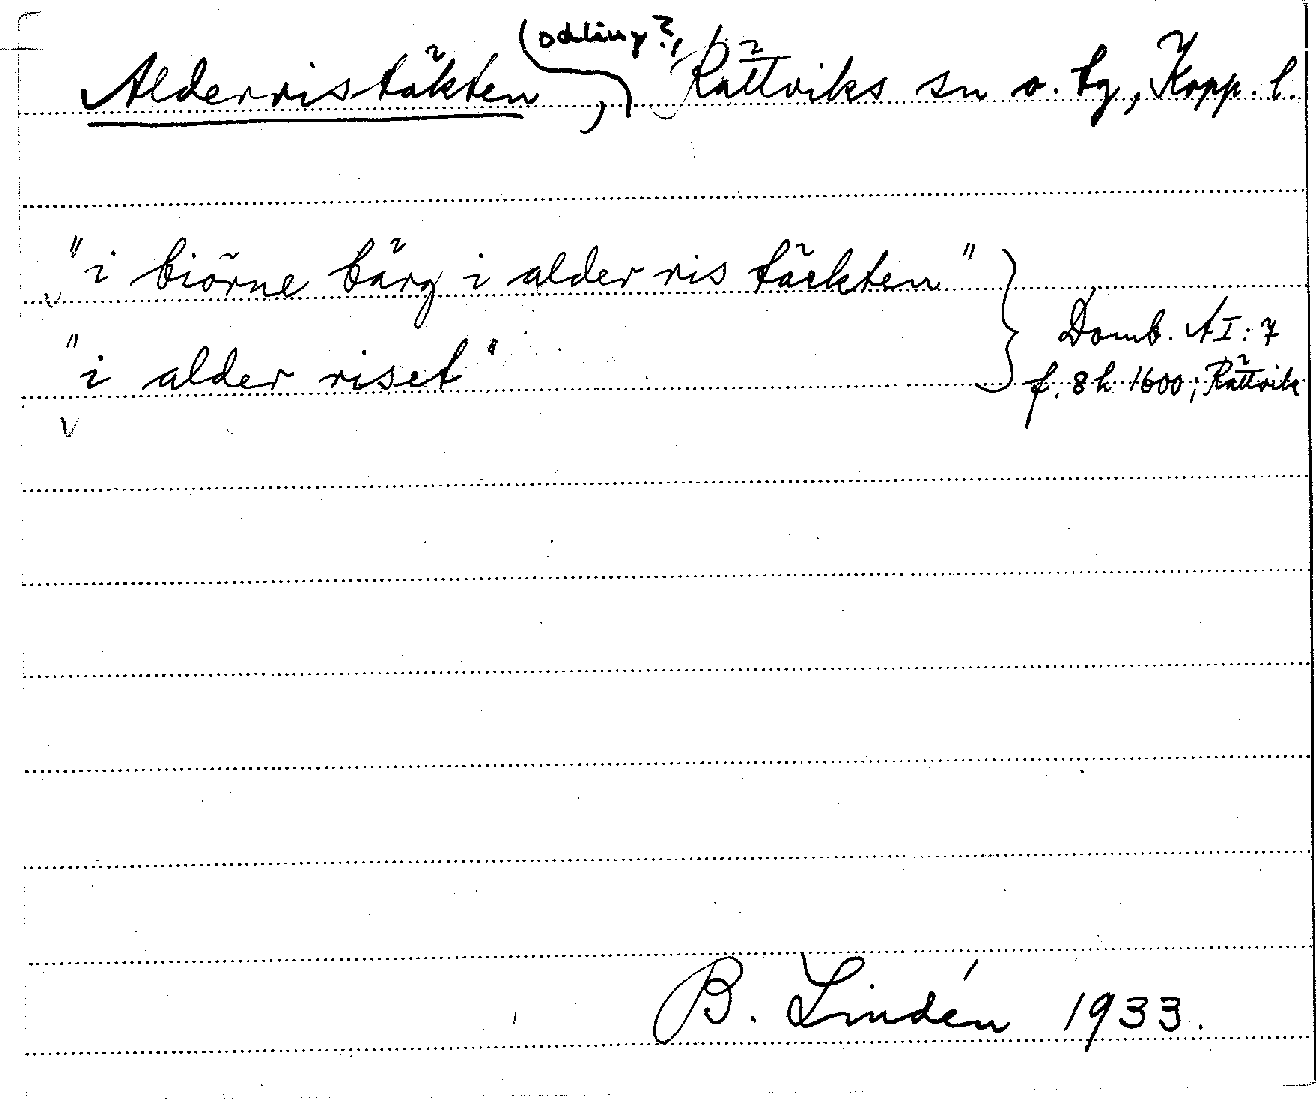 Alderristäkten (odling?), Rättviks sn o. tg, Kopp. l.
"i biörne bärg i alder ris täckten"
"i alder riset"
Domb. AI:7
f. 8 h 1600; Rättvik
B. Lindén 1933.